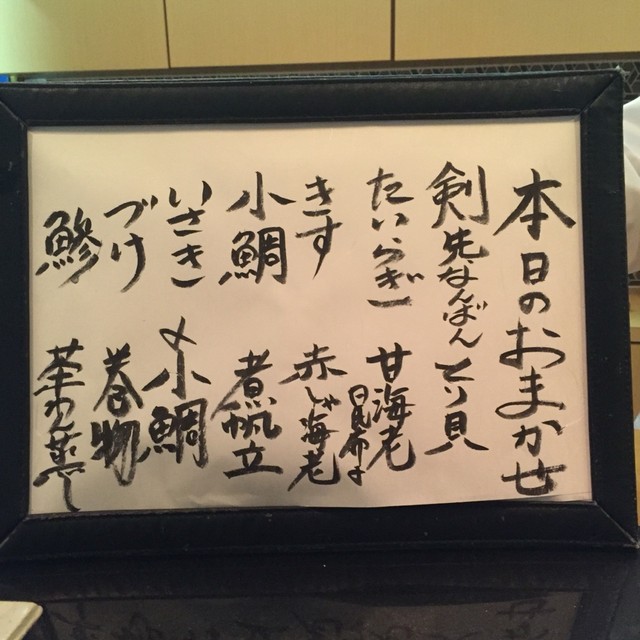 本日のおまかせ
剣先なんばん とり貝
たいらぎ 甘海老
昆布〆
きす 赤しゃ海老
小鯛 煮帆立
いさき 〆小鯛
づけ 巻物
鯵 茶わん蒸し